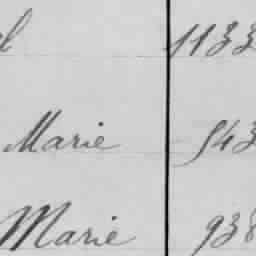 1133
Marie 943
Marie 938